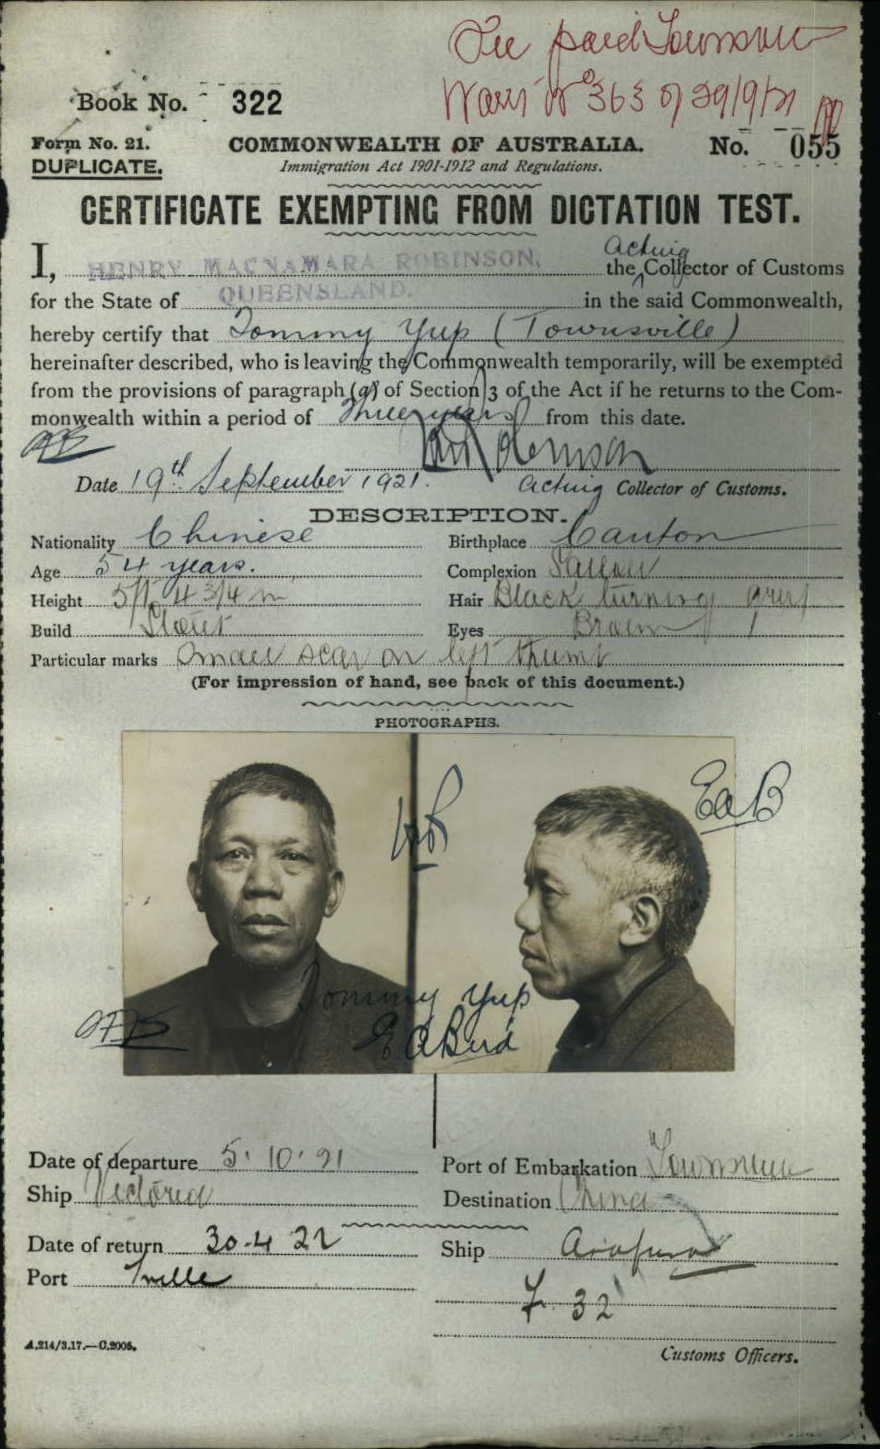 Fee paid Townsville
Warr No 363 of 29/9/21
Book No. 322
Form No. 21.
COMMONWEALTH OF AUSTRALIA.
No. 055
DUPLICATE.
Immigration Act 1901-1912 and Regulations.
CERTIFICATE EXEMPTING FROM DICTATION TEST.
I, HENRY MACNAMARA ROBINSON, the Acting Collector of Customs
for the State of QUEENSLAND. in the said Commonwealth,
hereby certify that Tommy Yup (Townsville)
hereinafter described, who is leaving the Commonwealth temporarily, will be exempted
from the provisions of paragraph (a) of Section 3 of the Act if he returns to the Com-
monwealth within a period of Three years from this date.
Date 19th September 1921.
Acting Collector of Customs.
DESCRIPTION.
Nationality Chinese
Birthplace Canton
Age 54 years.
Complexion Sallow
Height 5ft 4 3/4 in
Hair Black turning grey
Build Stout
Eyes Brown
Particular marks Small scar on left thumb
(For impression of hand, see back of this document.)
PHOTOGRAPHS.
EaB
Tommy Yup
E A Bird
Date of departure 5.10.21
Port of Embarkation Townsville
Ship Victoria
Destination China
Date of return 30.4 22
Ship Arafura
Port Tville
7. 32
A.214/3.17.—C.2005.
Customs Officers.